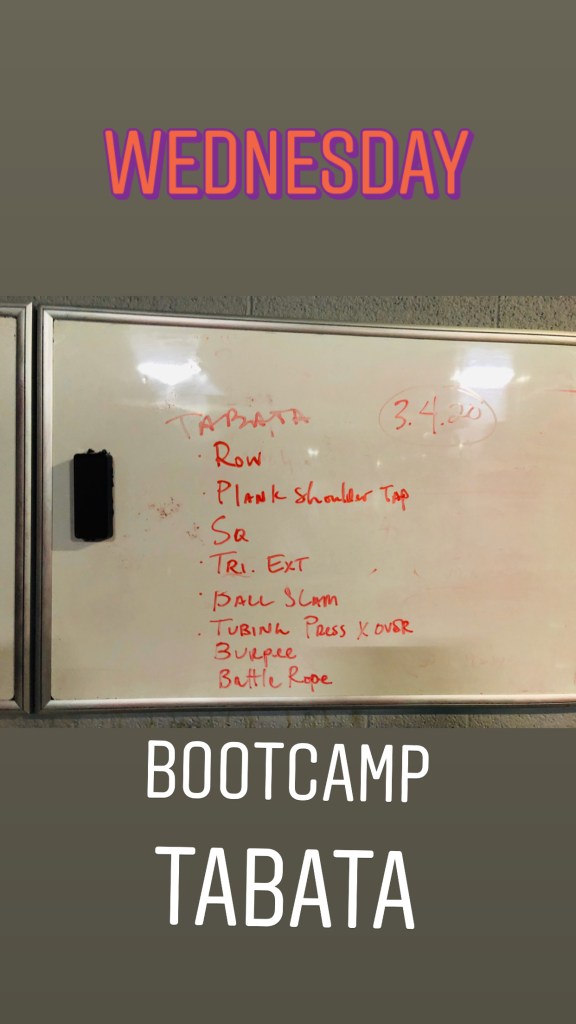 WEDNESDAY
TABATA
3.4.20
Row
Plank Shoulder Tap
SQ
TRI. EXT
BALL SLAM
TUBING PRESS X OVER
Burpee
Battle Rope
BOOTCAMP
TABATA